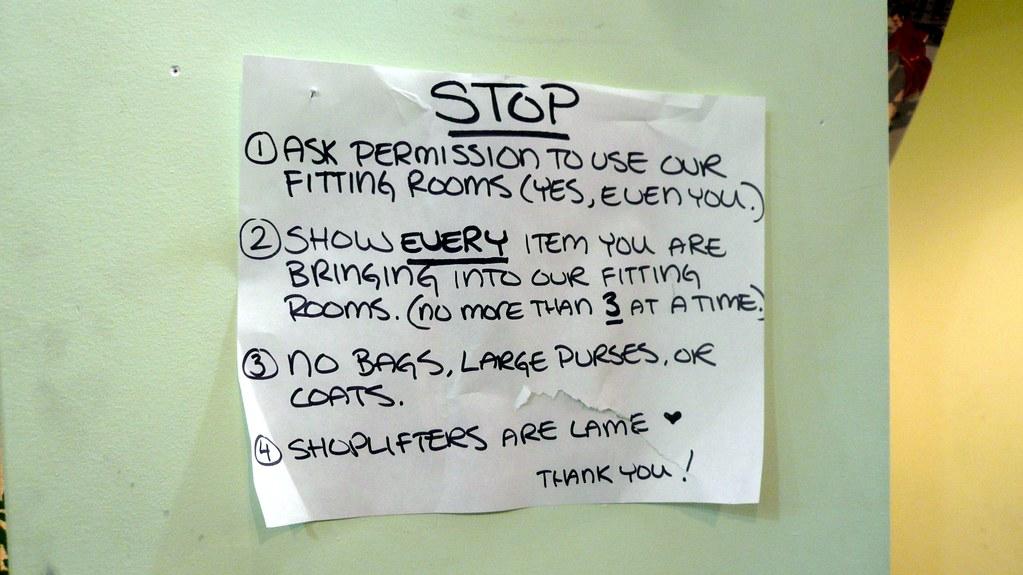 STOP
① ASK PERMISSION TO USE OUR
FITTING ROOMS (YES, EVEN YOU.)
② SHOW EVERY ITEM YOU ARE
BRINGING INTO OUR FITTING
ROOMS. (NO MORE THAN 3 AT A TIME.)
③ NO BAGS, LARGE PURSES, OR
COATS.
④ SHOPLIFTERS ARE LAME ♥
THANK YOU!